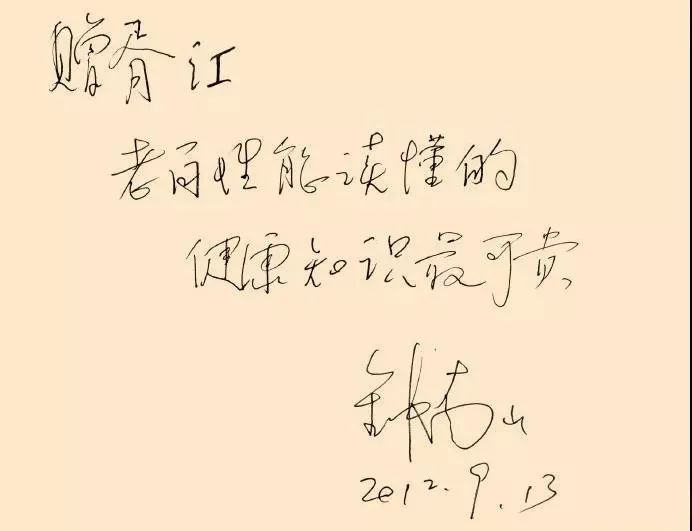 赠胥江
老百姓能读懂的
健康知识最可贵
钟南山
2012.9.13